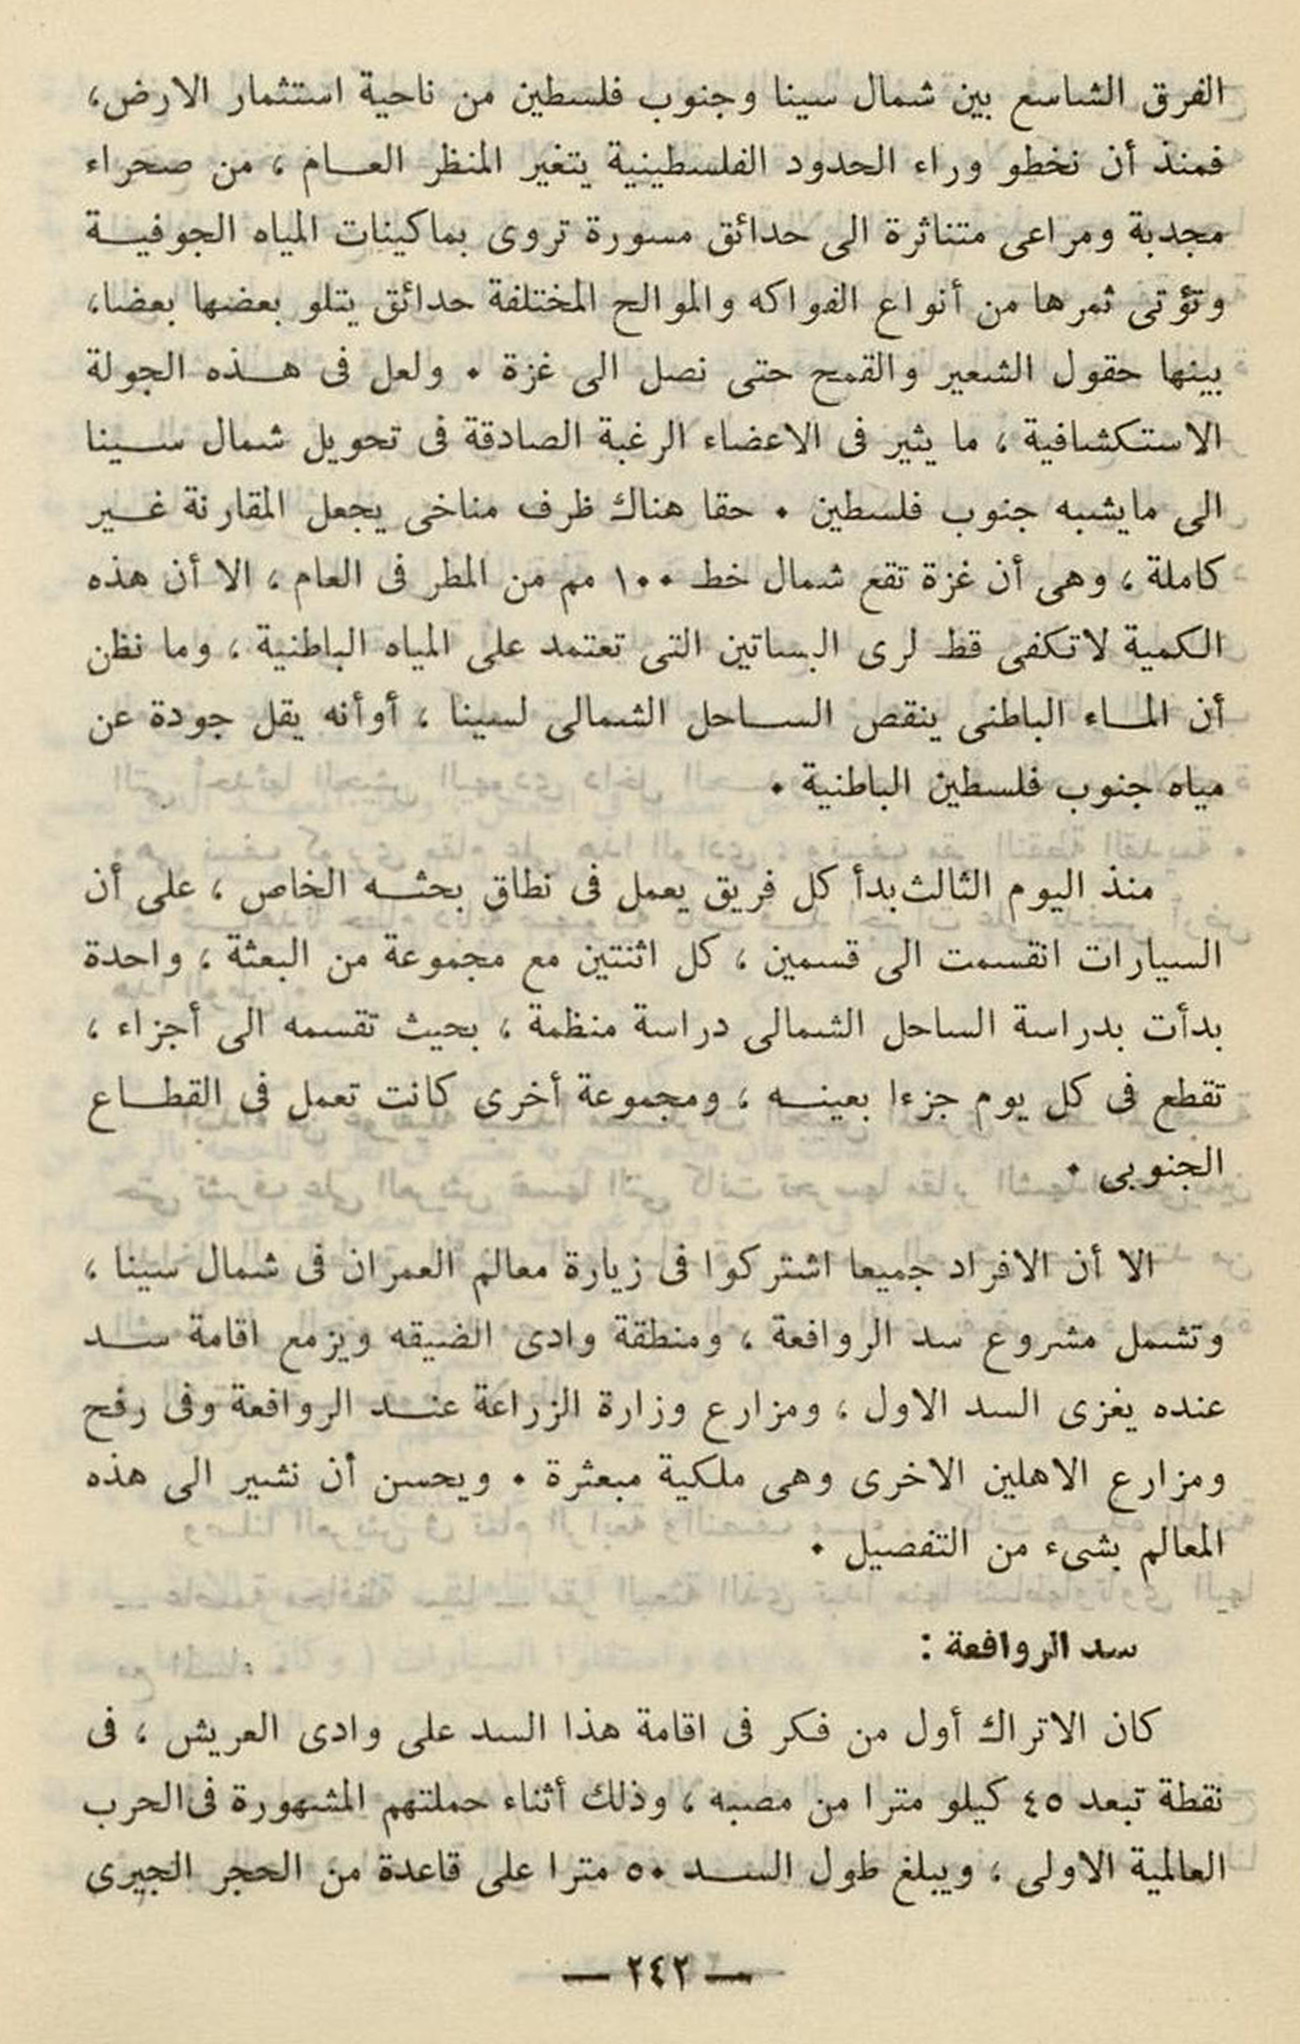 الفرق الشاسع بين شمال سينا وجنوب فلسطين من ناحية استثمار الارض،
فمنذ أن نخطو وراء الحدود الفلسطينية يتغير المنظر العـــام ، من صحراء
مجدبة ومراعى متناثرة الى حدائق مسورة تروى بماكينات المياه الجوفيــة
وتؤتى ثمرها من أنواع الفواكه والموالح المختلفة حدائق يتلو بعضها بعضا،
بينها حقول الشعير والقمح حتى نصل الى غزة ٠ ولعل فى هــذه الجولة
الاستكشافية ، ما يثير فى الاعضاء الرغبة الصادقة فى تحويل شمال ســينا
الى مايشبه جنوب فلسطين ٠ حقا هناك ظرف مناخى يجعل المقارنة غــير
كاملة ، وهى أن غزة تقع شمال خط ١٠٠ مم من المطر فى العام ، الا أن هذه
الكمية لاتكفى قط لرى البساتين التى تعتمد على المياه الباطنية ، وما نظن
أن المــاء الباطنى ينقص الســاحل الشمالى لسينا ، أوأنه يقل جودة عن
مياه جنوب فلسطين الباطنية ٠
منذ اليوم الثالث بدأ كل فريق يعمل فى نطاق بحثــه الخاص ، على أن
السيارات انقسمت الى قسمين ، كل اثنتين مع مجموعة من البعثة ، واحدة
بدأت بدراسة الساحل الشمالى دراسة منظمة ، بحيث تقسمه الى أجزاء ،
تقطع فى كل يوم جزءا بعينــه ، ومجموعة أخرى كانت تعمل فى القطــاع
الجنوبى ٠
الا أن الافراد جميعا اشتركوا فى زيارة معالم العمران فى شمال سينا ،
وتشمل مشروع سد الروافعة ، ومنطقة وادى الضيقه ويزمع اقامة ســد
عنده يغزى السد الاول ، ومزارع وزارة الزراعة عنــد الروافعة وفى رفح
ومزارع الاهلين الاخرى وهى ملكية مبعثرة ٠ ويحسن أن نشير الى هذه
المعالم بشىء من التفصيل ٠
سد الروافعة :
كان الاتراك أول من فكر فى اقامة هذا السد على وادى العريش ، فى
نقطة تبعد ٤٥ كيلو مترا من مصبه ، وذلك أثناء حملتهم المشهورة فى الحرب
العالمية الاولى ، ويبلغ طول الســد ٥٠ مترا على قاعدة من الحجر الجيرى
— ٢٤٢ —